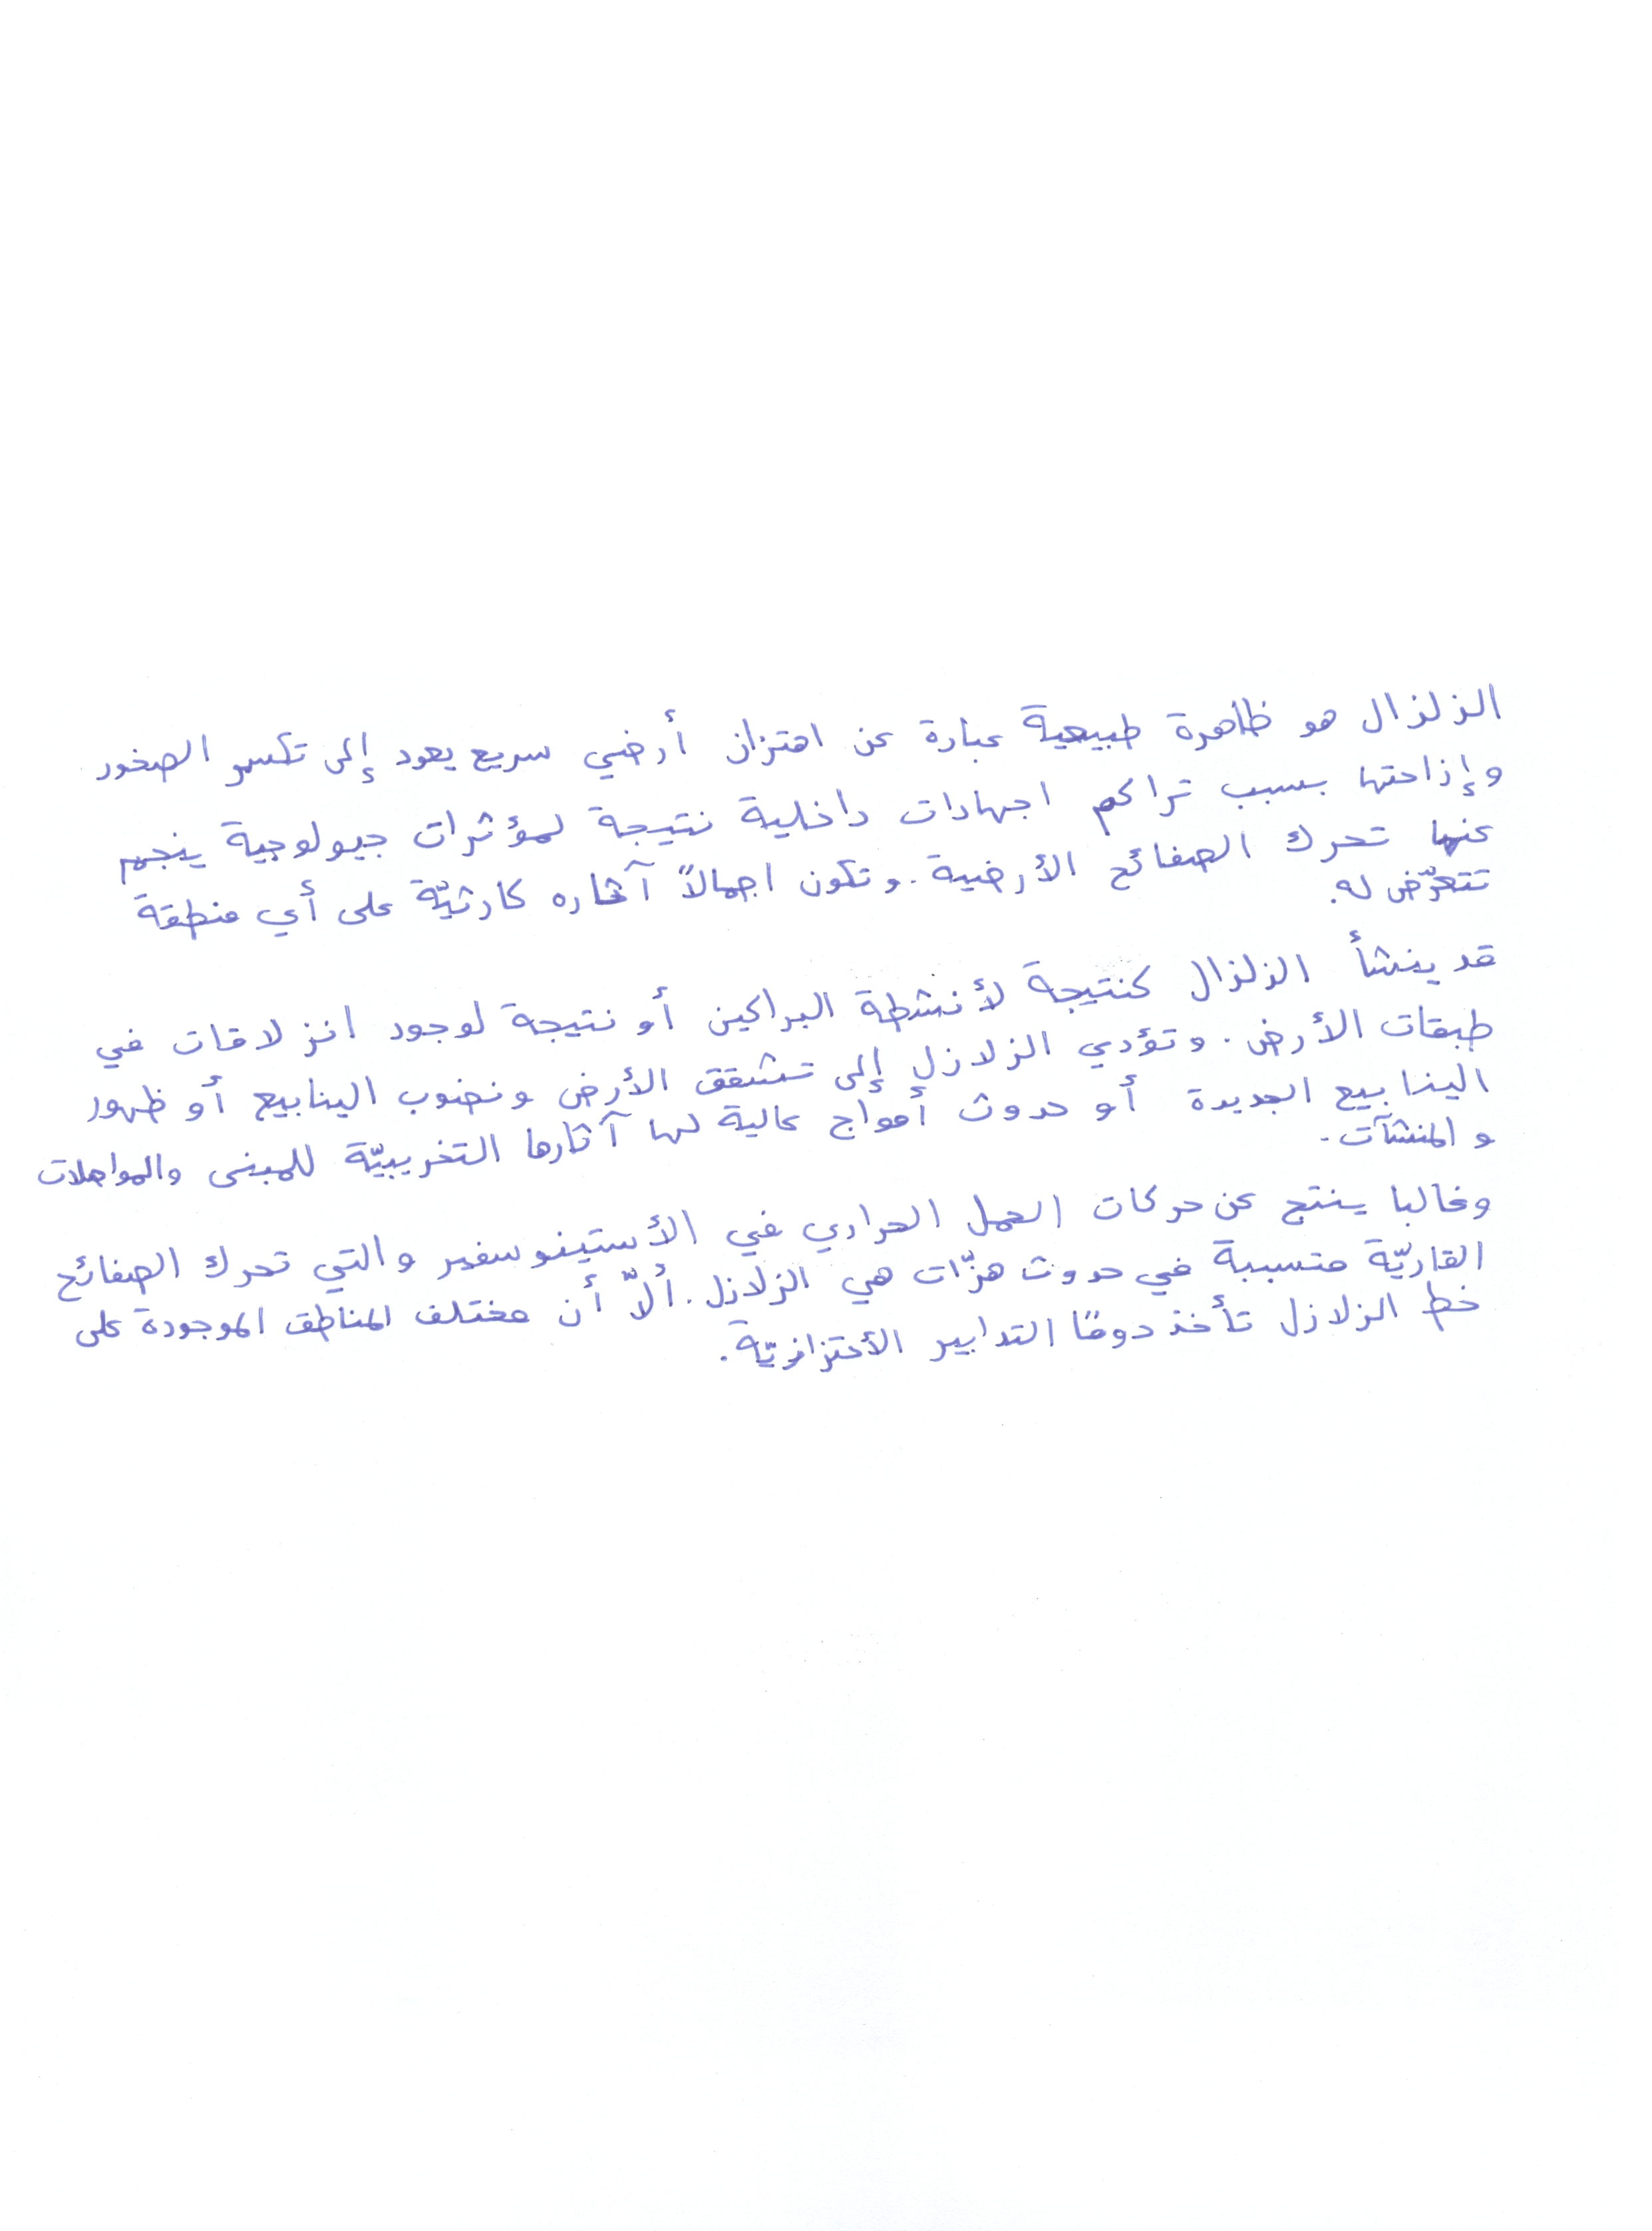 الزلزال هو ظاهرة طبيعية عبارة عن اهتزاز أرضي سريع يعود إلى تكسر الصخور
وإزاحتها بسبب تراكم اجهادات داخلية نتيجة لمؤثرات جيولوجية ينجم
عنها تحرك الصفائح الأرضية. وتكون اجمالاً آثاره كارثيّة على أي منطقة
تتعرّض له.
قد ينشأ الزلزال كنتيجة لأنشطة البراكين أو نتيجة لوجود انزلاقات في
طبقات الأرض. وتؤدي الزلازل إلى تشقق الأرض ونضوب الينابيع أو ظهور
الينابيع الجديدة أو حدوث أمواج عالية لها آثارها التخريبيّة للمبنى والمواصلات
والمنشآت.
وغالبا ينتج عن حركات الحمل الحراري في الأستينوسفير والتي تحرك الصفائح
القاريّة متسببة في حدوث هزّات هي الزلازل. ألاّ أن مختلف المناطق الموجودة على
خط الزلازل تأخذ دومًا التدابير الأحتزازيّة.